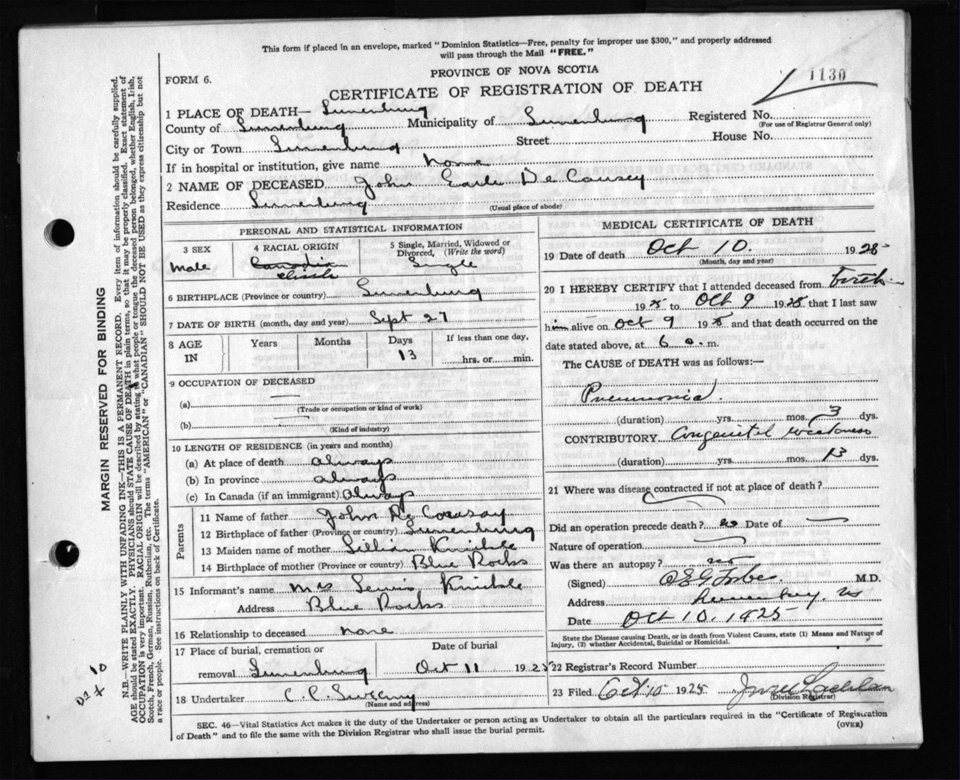 This form if placed in an envelope, marked "Dominion Statistics—Free, penalty for improper use $300," and properly addressed
will pass through the Mail "FREE."
PROVINCE OF NOVA SCOTIA
FORM 6.
CERTIFICATE OF REGISTRATION OF DEATH
1130
1 PLACE OF DEATH— Lunenburg
Registered No.
(For use of Registrar General only)
County of Lunenburg Municipality of Lunenburg
City or Town Lunenburg Street House No.
If in hospital or institution, give name
2 NAME OF DECEASED John Earle De Causey
Residence Lunenburg (Usual place of abode)
PERSONAL AND STATISTICAL INFORMATION
3 SEX 4 RACIAL ORIGIN 5 Single, Married, Widowed or
Divorced, (Write the word)
male Canadian Single
6 BIRTHPLACE (Province or country) Lunenburg
7 DATE OF BIRTH (month, day and year) Sept 27
8 AGE IN Years Months Days If less than one day,
13 hrs. or min.
9 OCCUPATION OF DECEASED
(a) —
(Trade or occupation or kind of work)
(b) —
(Kind of industry)
10 LENGTH OF RESIDENCE (in years and months)
(a) At place of death always
(b) In province always
(c) In Canada (if an immigrant) always
Parents
11 Name of father John De Causay
12 Birthplace of father (Province or country) Lunenburg
13 Maiden name of mother Lillian
14 Birthplace of mother (Province or country) Blue Rocks
15 Informant's name Mrs Lewis
Address Blue Rocks
16 Relationship to deceased none
17 Place of burial, cremation or Date of burial
removal Lunenburg Oct 11 1925
18 Undertaker C. P.
(Name and address)
MEDICAL CERTIFICATE OF DEATH
19 Date of death Oct 10. 1925
(Month, day and year)
20 I HEREBY CERTIFY that I attended deceased from birth
1925 to Oct 9 1925 that I last saw
him alive on Oct 9 1925 and that death occurred on the
date stated above, at 6 a. m.
The CAUSE of DEATH was as follows:—
Pneumonia.
(duration) yrs. mos. 3 dys.
CONTRIBUTORY Congenital weakness
(duration) yrs. mos. 13 dys.
21 Where was disease contracted if not at place of death?
Did an operation precede death? no Date of —
Nature of operation —
Was there an autopsy? no
(Signed) M.D.
Address Lunenburg, NS
Date Oct 10, 1925
State the Disease causing Death, or in death from Violent Causes, state (1) Means and Nature of
Injury, (2) whether Accidental, Suicidal or Homicidal.
22 Registrar's Record Number
23 Filed Oct 10 1925
(Division Registrar)
SEC. 46—Vital Statistics Act makes it the duty of the Undertaker or person acting as Undertaker to obtain all the particulars required in the "Certificate of Registration
of Death" and to file the same with the Division Registrar who shall issue the burial permit. (OVER)
MARGIN RESERVED FOR BINDING
N.B.—WRITE PLAINLY WITH UNFADING INK—THIS IS A PERMANENT RECORD. Every item of information should be carefully supplied.
AGE should be stated EXACTLY. PHYSICIANS should STATE CAUSE OF DEATH in plain terms, so that it may be properly classified. Exact statement of
OCCUPATION is very important. RACIAL ORIGIN will be described by stating to what people or tongue the deceased person belonged, whether English, Irish,
Scotch, French, German, Russian, Ruthenian, etc. The terms "AMERICAN" or "CANADIAN" SHOULD NOT BE USED as they express citizenship but not
a race or people. See instructions on back of Certificate.